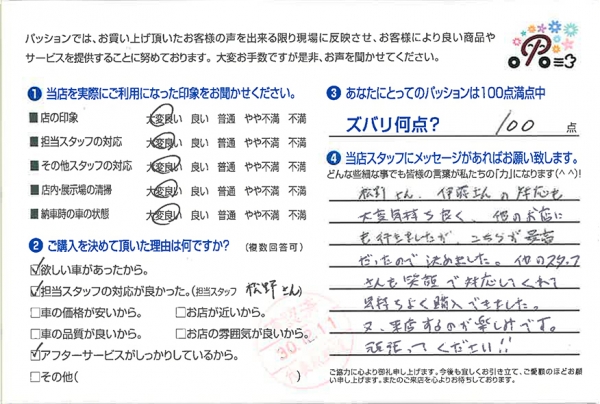 パッションでは、お買い上げ頂いたお客様の声を出来る限り現場に反映させ、お客様により良い商品や
サービスを提供することに努めております。大変お手数ですが是非、お声を聞かせてください。
❶ 当店を実際にご利用になった印象をお聞かせください。
■店の印象 大変良い 良い 普通 やや不満 不満
■担当スタッフの対応 大変良い 良い 普通 やや不満 不満
■その他スタッフの対応 大変良い 良い 普通 やや不満 不満
■店内・展示場の清掃 大変良い 良い 普通 やや不満 不満
■納車時の車の状態 大変良い 良い 普通 やや不満 不満
❷ ご購入を決めて頂いた理由は何ですか?(複数回答可)
☑欲しい車があったから。
☑担当スタッフの対応が良かった。(担当スタッフ 松野さん)
□車の価格が安いから。 □お店が近いから。
□車の品質が良いから。 □お店の雰囲気が良いから。
☑アフターサービスがしっかりしているから。
□その他( )
❸ あなたにとってのパッションは100点満点中
ズバリ何点? 100 点
❹ 当店スタッフにメッセージがあればお願い致します。
どんな些細な事でも皆様の言葉が私たちの「力」になります(^^)!
松野さん、伊藤さんの対応も
大変気持ち良く、他のお店に
も行きましたが、こちらが最高
だったので決めました。他のスタッフ
さんも笑顔で対応してくれて
気持ちよく購入できました。
又、来店するのが楽しみです。
頑張ってください!!
ご協力に心より御礼申し上げます。今後も宜しくお引き立て、ご愛顧のほどお願
い申し上げます。またのご来店を心よりお待ちしております。